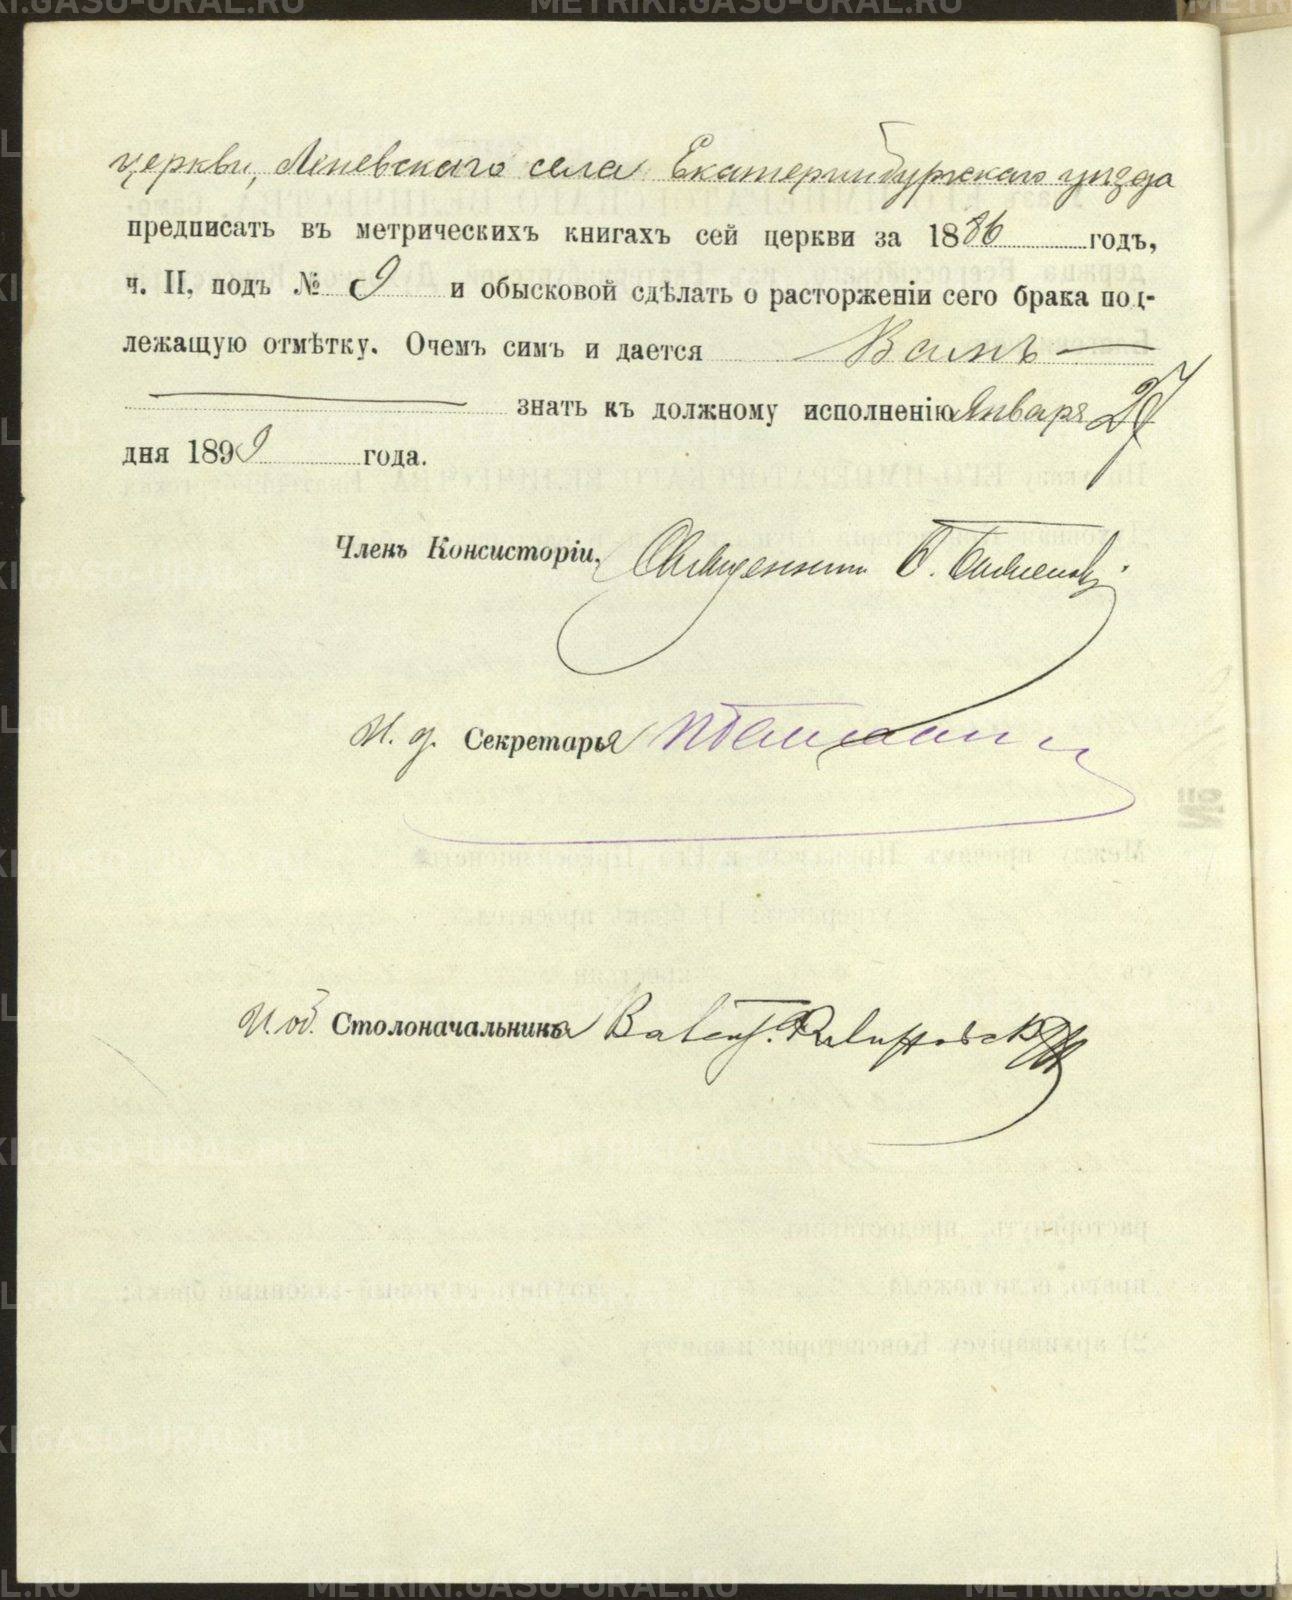 церкви, Леневскаго села Екатеринбургскаго уѣзда
предписать въ метрическихъ книгахъ сей церкви за 1886 годъ,
ч. II, подъ № 9 и обысковой сдѣлать о расторженіи сего брака под-
лежащую отмѣтку. Очемъ симъ и дается Вамъ
знать къ должному исполненію Января 27
дня 1899 года.
Членъ Консисторіи, Священникъ
И. д. Секретаря
И. об. Столоначальника
METRIKI.GASO-URAL.RU